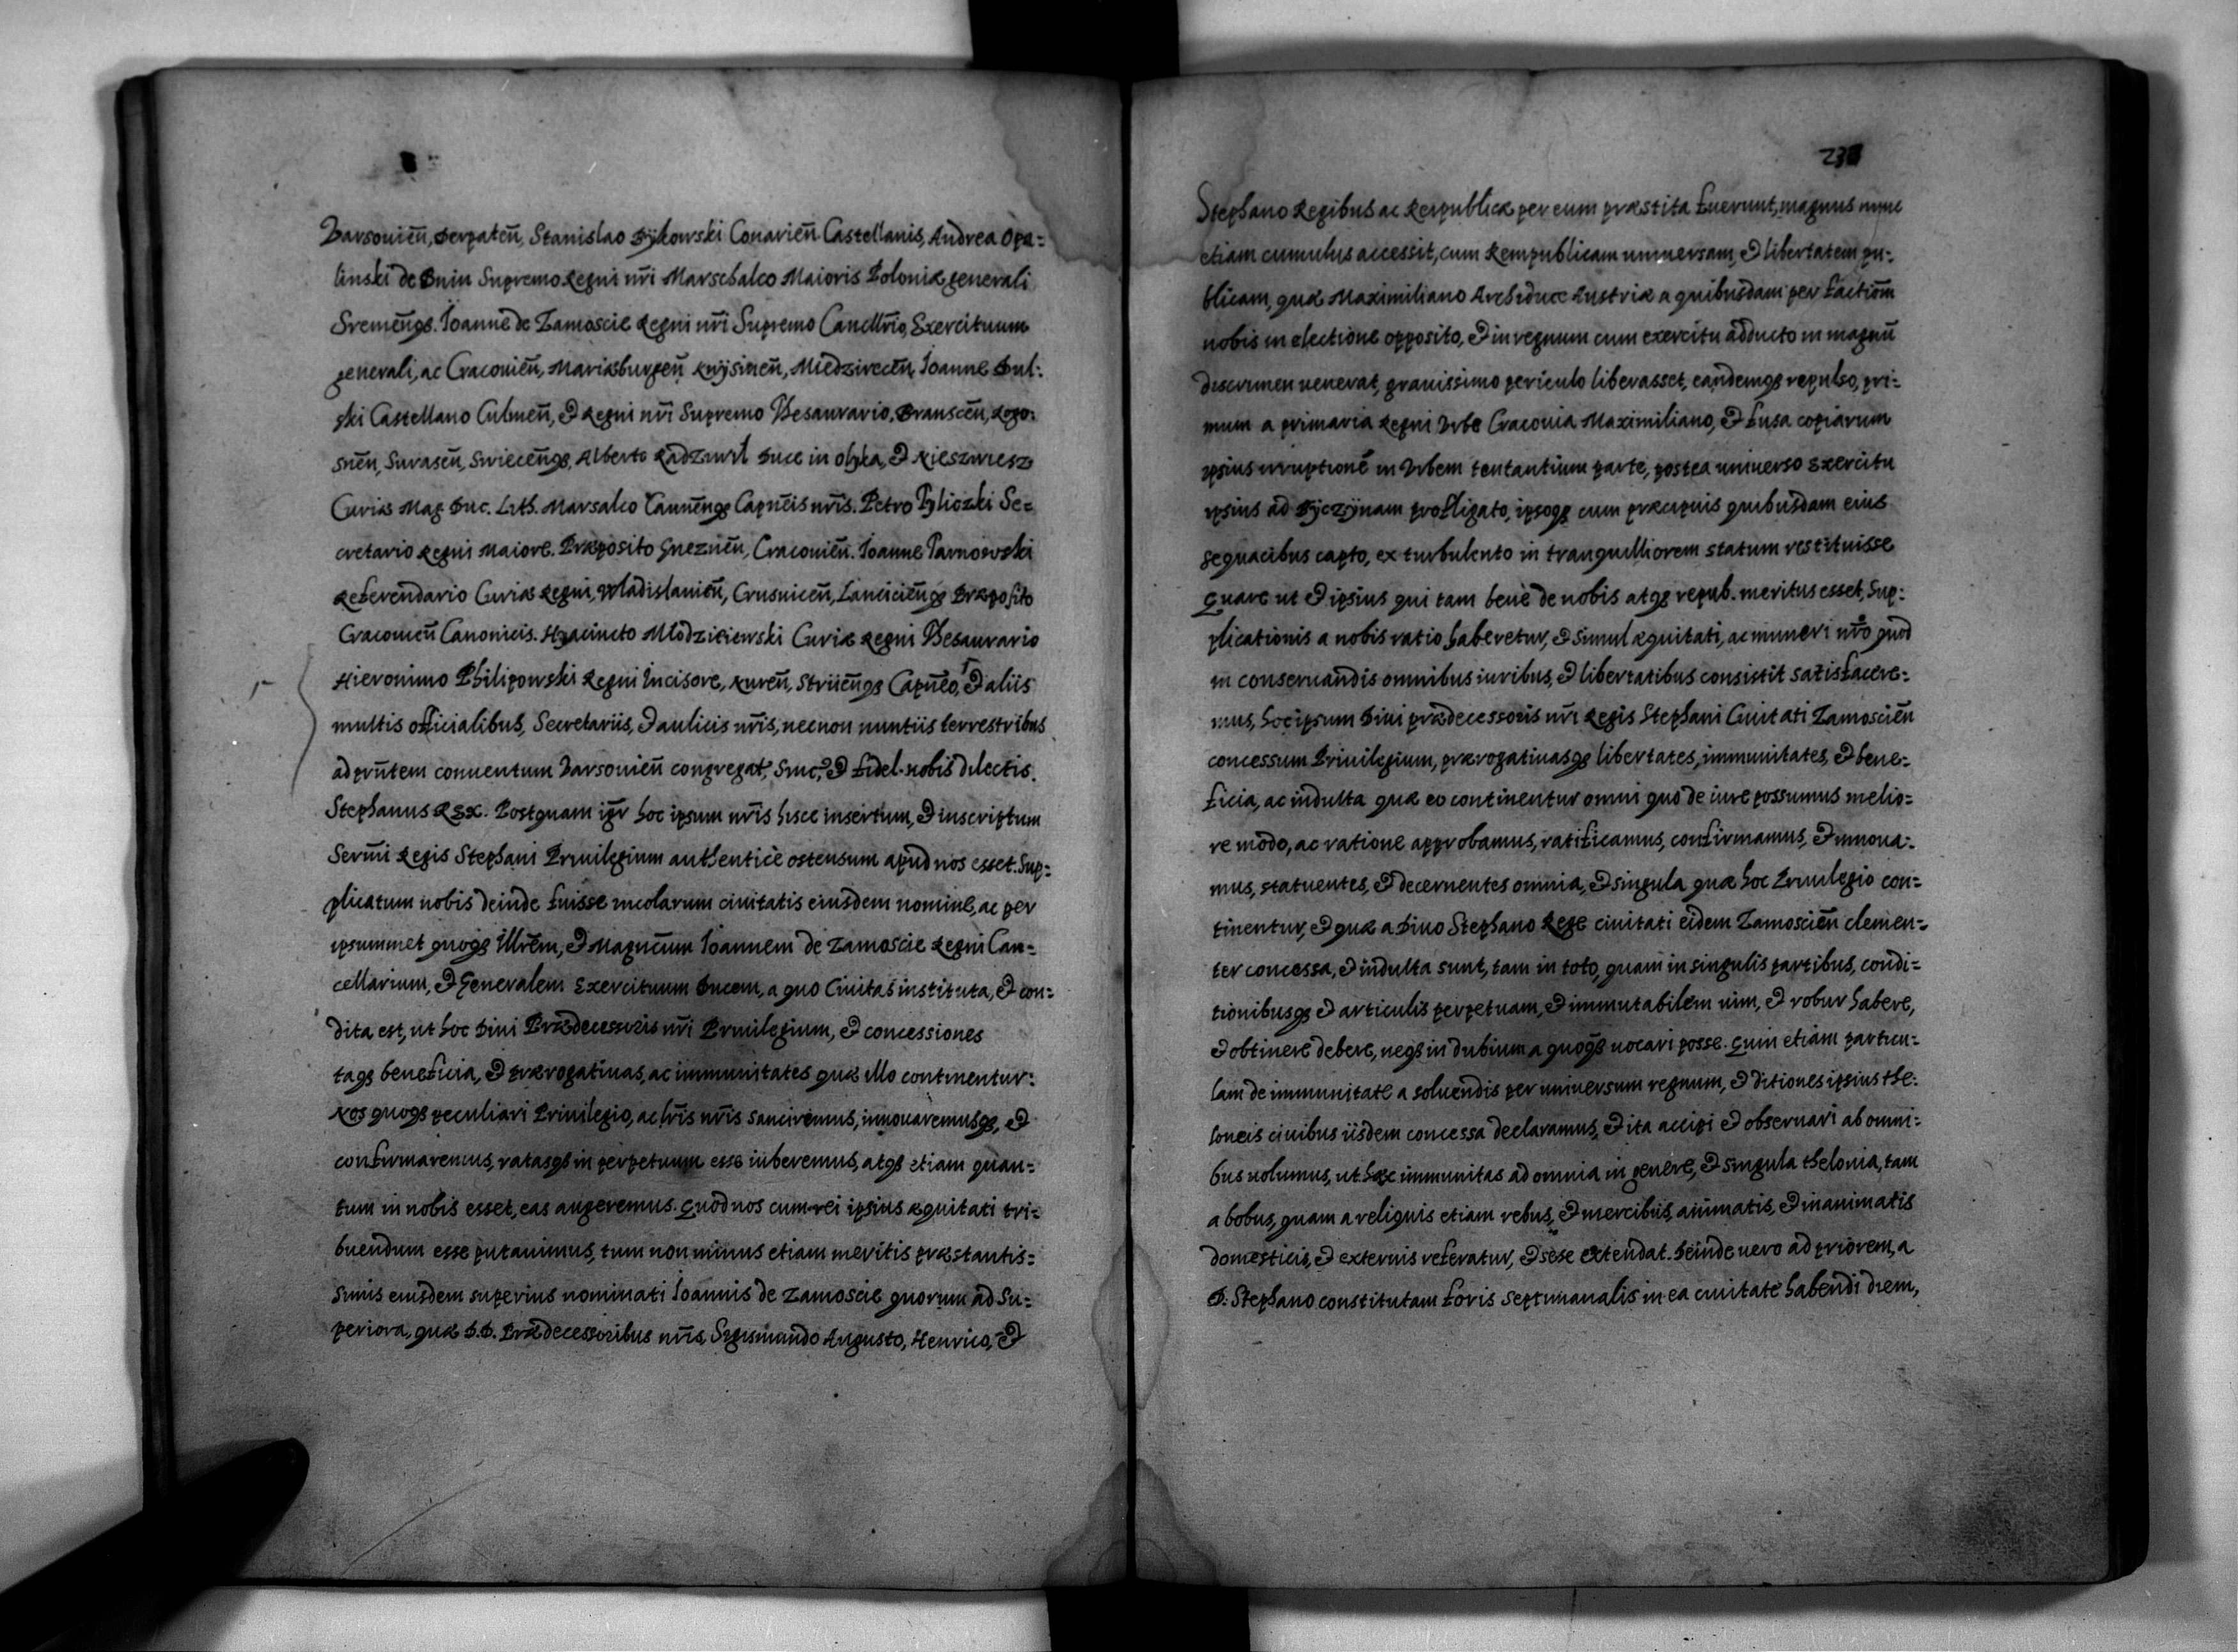 Varsovień, Derpateń, Stanislao Bykowski Conavień Castellanis, Andrea Opa=
linski de Bnin Supremo Regni nri Marschalco Maioris Poloniæ generali
Sremeñqȝ. Ioanne de Zamoscie Regni nri Supremo Cancllrio, Exercituum
generali, ac Cracovień, Mariæburgeń Knysineń, Miedzireceń, Ioanne Dul=
ski Castellano Culmeń, & Regni nri Supremo Thesaurario, Branсeń, Rogo=
sneń, Suraseń, Svieceñqȝ, Alberto Radziwil Duce in olyka, & Nieszwiesz
Curiæ Mag. Duc. Lith. Marsalco Cauneñqȝ Capneis nris. Petro Tyliczki Se=
cretario Regni Maiore. Præposito Gnezneń, Cracovień. Ioanne Tarnowski
Referendario Curiæ Regni, Wladislavień, Crusviceń, Lanciciẽqȝ Præposito
Cracovień Canonicis. Hyacincto Mlodzieiewski Curiæ Regni Thesaurario
Hieronimo Philipowski Regni Incisore, Kureń, Striieñqȝ Capneo, & aliis
multis officialibus, Secretariis, & aulicis nris, necnon nuntiis terrestribus
ad prñtem conventum Varsovień congregat, Sinc. & fidel. nobis dilectis.
Stephanus Rex. Postquam igr hoc ipsum nris hisce insertum, & inscriptum
Sermi Regis Stephani Privilegium authenticè ostensum apud nos esset. Sup=
plicatum nobis deinde fuisse incolarum civitatis eiusdem nomine, ac per
ipsummet quoqȝ Illrem, & Magncum Ioannem de Zamoscie Regni Can=
cellarium, & Generalem Exercituum Ducem, a quo Civitas instituta, & con=
dita est, ut hoc Divi Prædecessoris nri Privilegium, & concessiones
taqȝ beneficia, & prærogativas, ac immunitates quæ illo continentur:
Nos quoqȝ peculiari Privilegio, ac lris nris sanciremus, innovaremusqȝ, &
confirmaremus, ratasqȝ in perpetuum esse iuberemus, atqȝ etiam quan=
tum in nobis esset, eas augeremus. Quod nos cum rei ipsius æquitati tri=
buendum esse putavimus, tum non minus etiam meritis præstantis=
simis eiusdem superius nominati Ioannis de Zamoscie quorum ad Su=
periora, quæ D.D. Prædecessoribus nris, Sigismundo Augusto, Henrico, &
Stephano Regibus ac Reipublicæ per eum præstita fuerunt, magnus nunc
etiam cumulus accessit, cum Rempublicam universam, & libertatem pu=
blicam, quæ Maximiliano Archiduce Austriæ a quibusdam per factiom
nobis in electione opposito, & in regnum cum exercitu adducto in magnū
discrimen venerat, gravissimo periculo liberasset, eandemqȝ repulso, pri=
mum a primaria Regni Urbe Cracovia Maximiliano, & fusa copiarum
ipsius irruptionē in Urbem tentantium parte, postea universo Exercitu
ipsius ad Byczynam profligato, ipsoqȝ cum præcipuis quibusdam eius
sequacibus capto, ex turbulento in tranquilliorem statum restituisse
Quare ut & ipsius qui tam bene de nobis atqȝ repub. meritus esset, Sup=
plicationis a nobis ratio haberetur, & simul æquitati, ac muneri nro quod
in conservandis omnibus iuribus, & libertatibus consistit satisfacere=
mus, hoc ipsum Divi prædecessoris nri Regis Stephani Civitati Zamoscień
concessum Privilegium, prærogativasqȝ libertates, immunitates, & bene=
ficia, ac indulta quæ eo continentur omni quo de iure possumus melio=
re modo, ac ratione approbamus, ratificamus, confirmamus, & innova=
mus, statuentes, & decernentes omnia, & singula quæ hoc Privilegio con=
tinentur, & quæ a Divo Stephano Rege civitati eidem Zamoscień clemen=
ter concessa, & indulta sunt, tam in toto, quam in singulis partibus, condi=
tionibusqȝ & articulis perpetuam, & immutabilem vim, & robur habere,
& obtinere debere, neqȝ in dubium a quoqȝ vocari posse. Quin etiam particu=
lam de immunitate a solvendis per universum regnum, & ditiones ipsius the=
loneis civibus iisdem concessa declaramus, & ita accipi & observari ab omni=
bus volumus, ut hæc immunitas ad omnia in genere, & singula thelonia, tam
a bobus, quam a reliquis etiam rebus, & mercibus, animatis, & inanimatis
domesticis, & externis referatur, & sese extendat. Deinde vero ad priorem, a
D. Stephano constitutam foris septimanalis in ea civitate habendi diem,